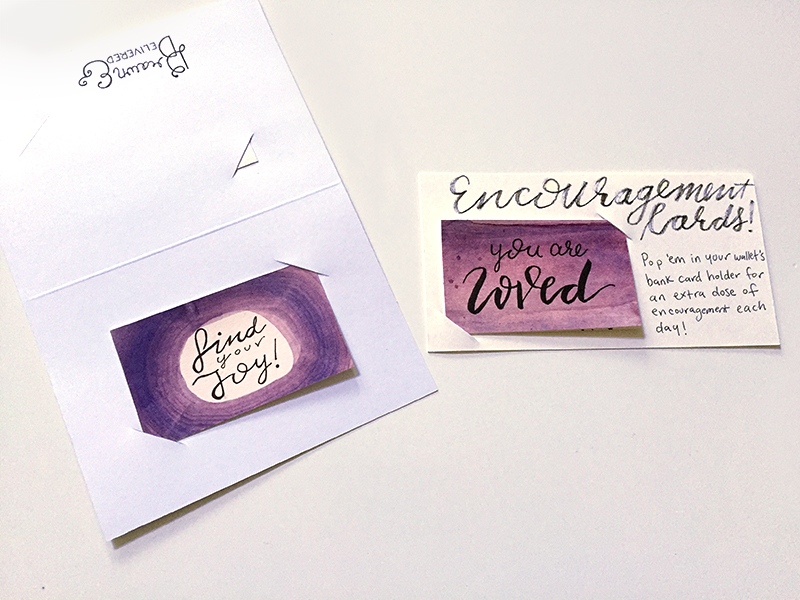 DELIVERED
find
your
Joy!
Encouragement
Cards!
you are
loved
Pop 'em in your wallet's
bank card holder for
an extra dose of
encouragement each
day!